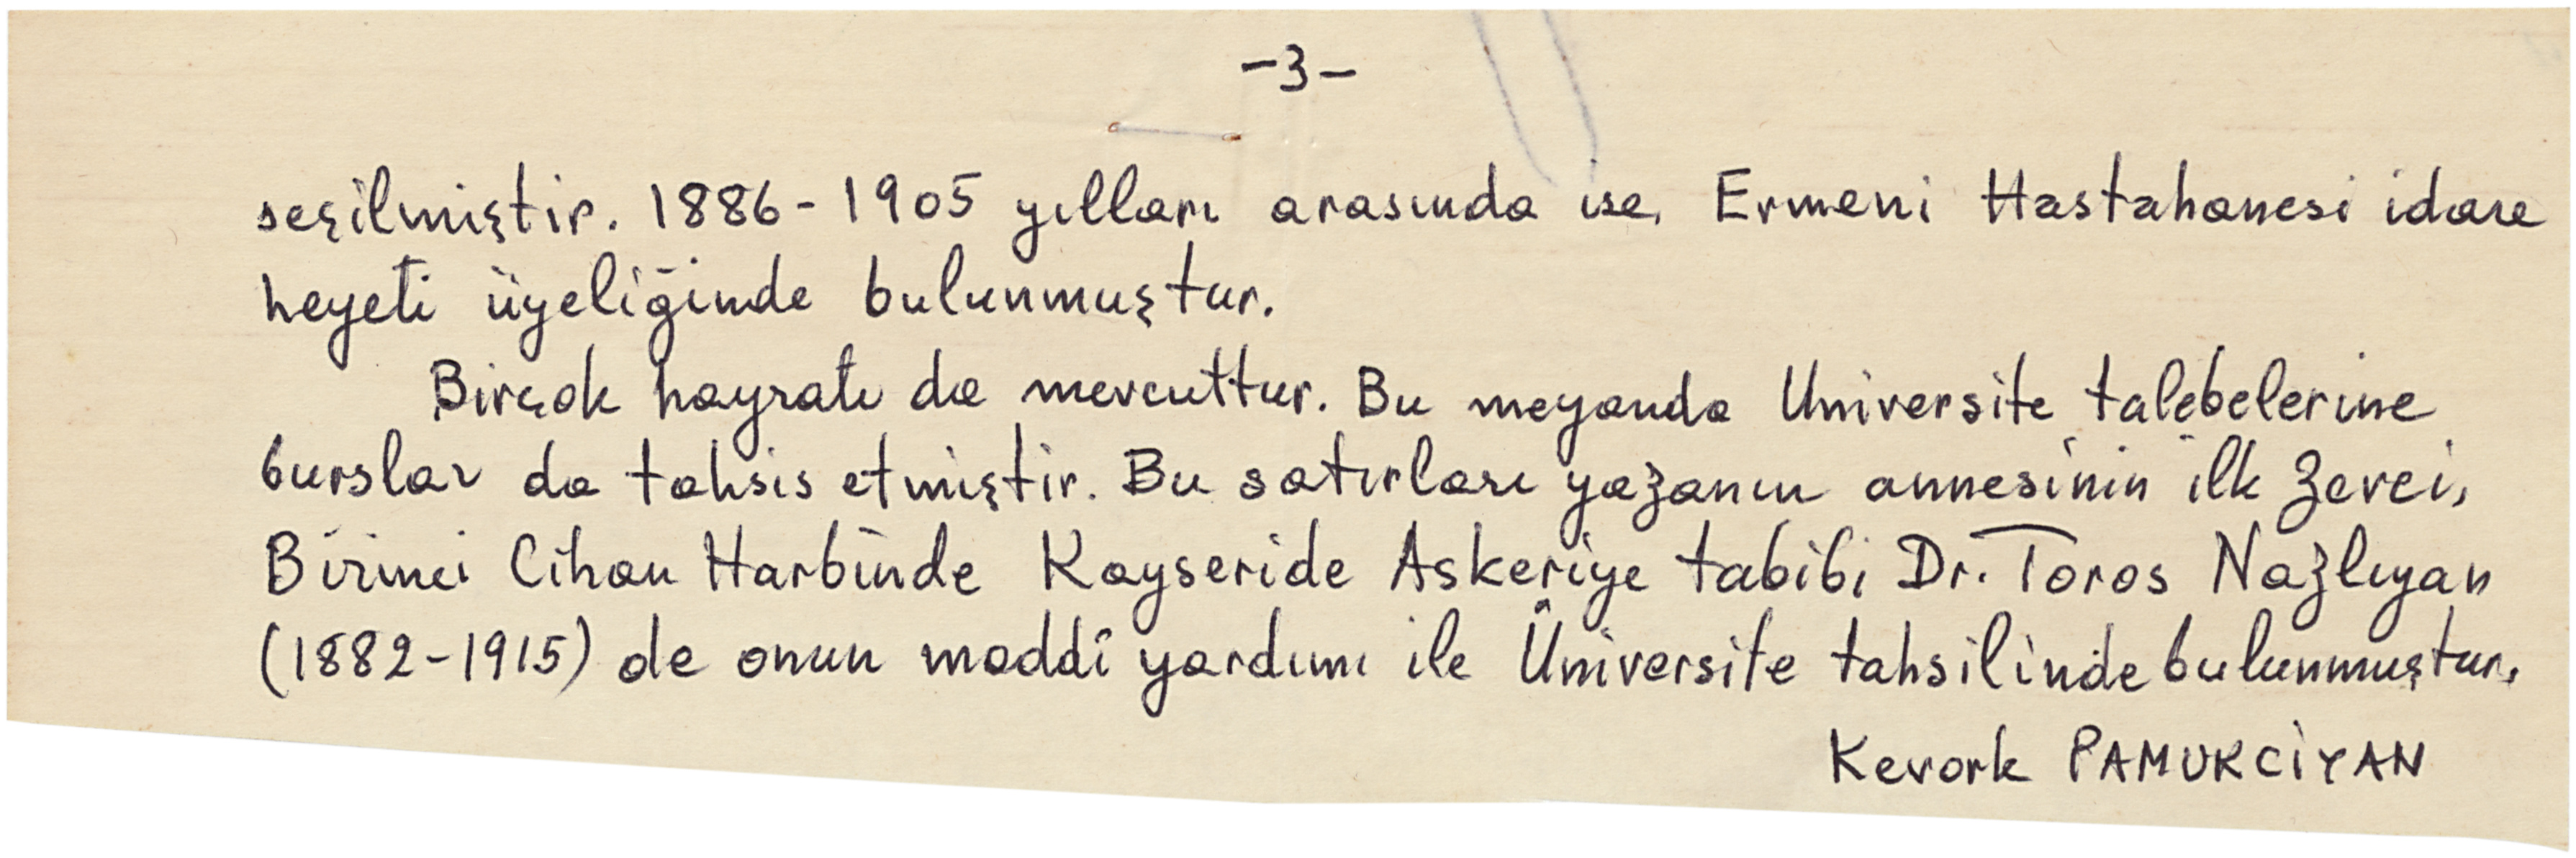 -3-
seçilmiştir. 1886-1905 yılları arasında ise, Ermeni Hastahanesi idare
heyeti üyeliğinde bulunmuştur.
Birçok hayratı da mevcuttur. Bu meyanda Üniversite talebelerine
burslar da tahsis etmiştir. Bu satırları yazanın annesinin ilk zevci,
Birinci Cihan Harbinde Kayseride Askeriye tabibi Dr. Toros Nazlıyan
(1882-1915) de onun maddî yardımı ile Üniversite tahsilinde bulunmuştur.
Kevork PAMUKCİYAN